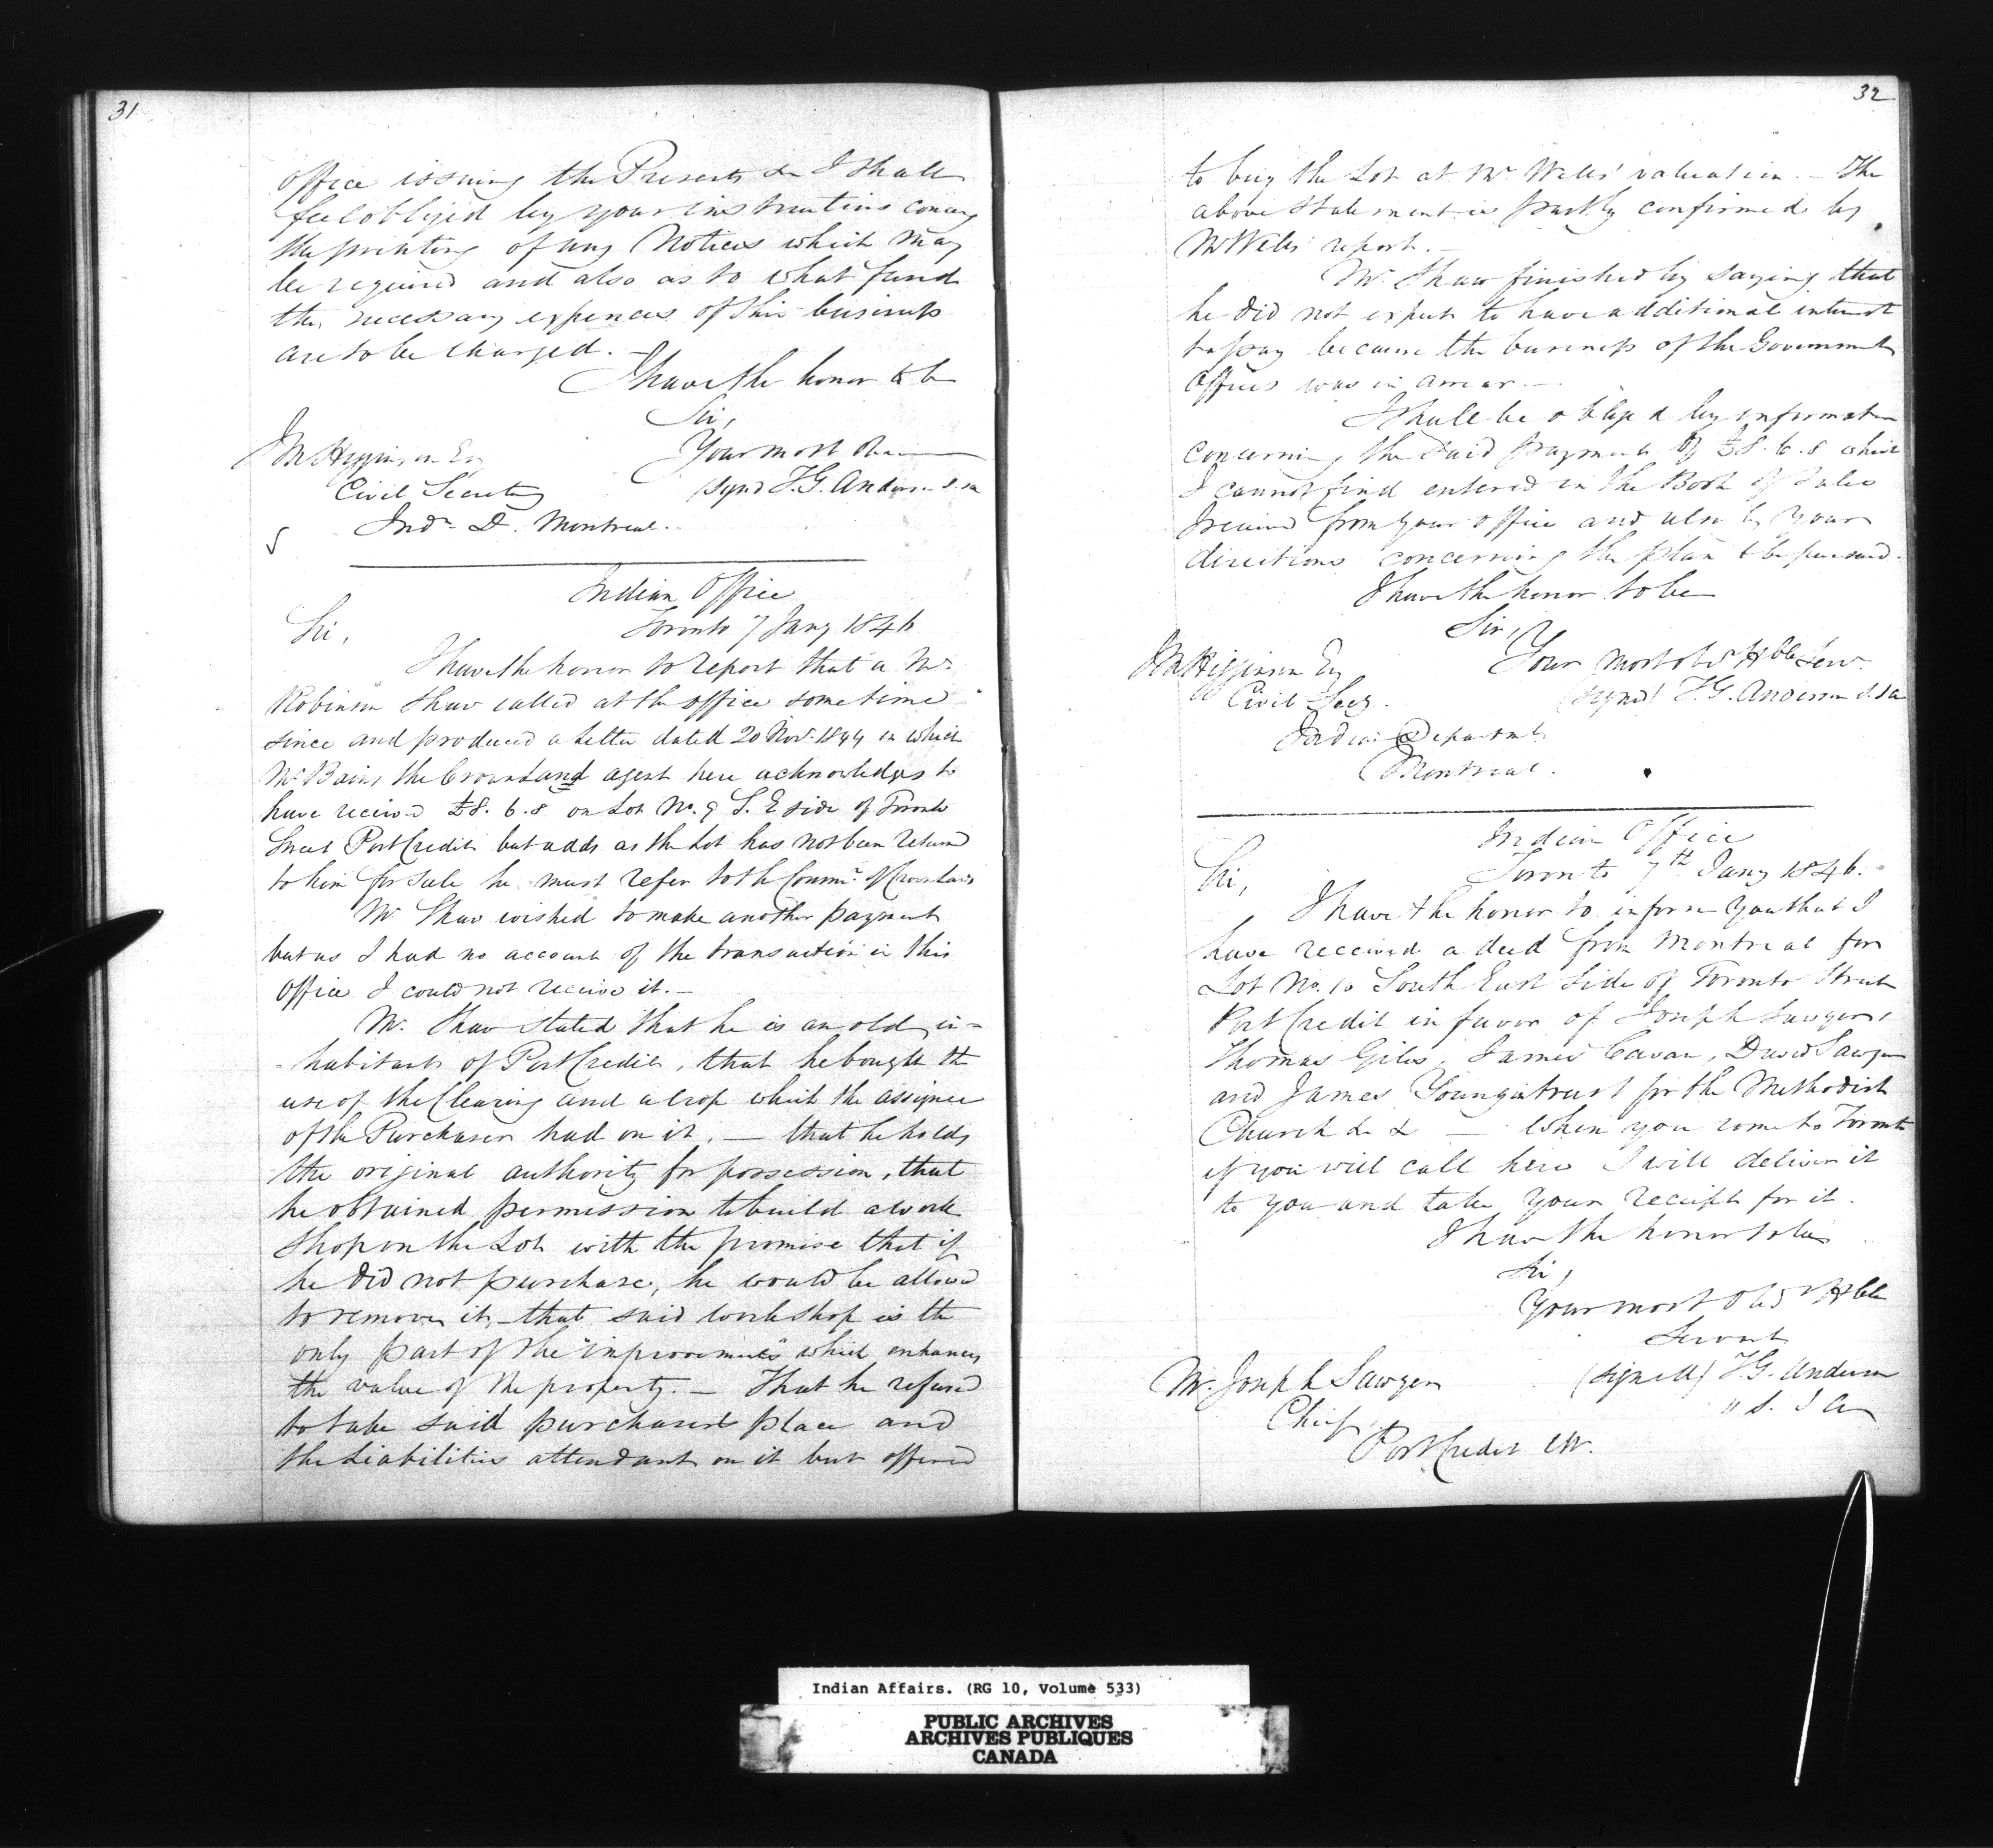 31
office issuing the Presents &c I shall
feel obliged by your instructions concng
the printing of any Notices which may
be required and also as to what fund
the necessary expences of this business
are to be charged. —
I have the honor to be
Sir,
Your most
J M Higginson Esq
(signd) T. G. Anderson
Civil Secretary
Ind. D. Montreal.
Indian Office
Toronto 7 Jany 1846
Sir,
I have the honor to report that a Mr.
Robinson Shaw called at the office sometime
since and produced a letter dated 20 Nov. 1844 in which
Mr Baines the Crown Land agent here acknowledges to
have received £8. 6. 8 on Lot No. 9 S. E side of Toronto
Street Port Credit but adds as the Lot has not been returned
to him for sale he must refer to the Commr. of Crown Lands
Mr Shaw wished to make another payment
but as I had no account of the transaction in this
office I could not receive it. —
Mr. Shaw stated that he is an old in-
-habitant of Port Credit, that he bought the
use of the Clearing and a crop which the assignee
of the Purchaser had on it, — that he holds
the original authority for possession, that
he obtained permission to build a work
shop on the Lot with the promise that if
he did not purchase, he would be allowed
to remove it, — that said workshop is the
only part of the "improvements" which enhances
the value of the property. — That he refused
to take said purchasers place and
the Liabilities attendant on it but offered
32
to buy the Lot at Mr. Wells' valuation. — The
above statement is partly confirmed by
Mr Wells' report. —
Mr. Shaw finished by saying that
he did not expect to have additional interest
to pay because the business of the Government
Offices was in arrear. —
I shall be obliged by information
concerning the said payment of £8. 6. 8 which
I cannot find entered in the Book of Sales
received from your office and also by your
directions concerning the plan to be pursued.
I have the honor to be
Sir,
Your most obdt Hble Serv.
J M Higginson Esq
(signd) T. G. Anderson
Civil Secy.
Indian Department
Montreal.
Indian Office
Toronto 7th Jany 1846.
Sir,
I have the honor to inform you that I
have received a deed from Montreal for
Lot No. 10 South East Side of Toronto Street
Port Credit in favor of Joseph Sawyer,
Thomas Giles, James Cavan, David Sawyer
and James Young in trust for the Methodist
Church &c &c — When you come to Toronto
if you will call here I will deliver it
to you and take your receipt for it.
I have the honor to be
Sir,
Your most Obdt Hble
Servant
Mr. Joseph Sawyer
(signed) T. G. Anderson
Chief
Port Credit CW.
Indian Affairs. (RG 10, Volume 533)
PUBLIC ARCHIVES
ARCHIVES PUBLIQUES
CANADA